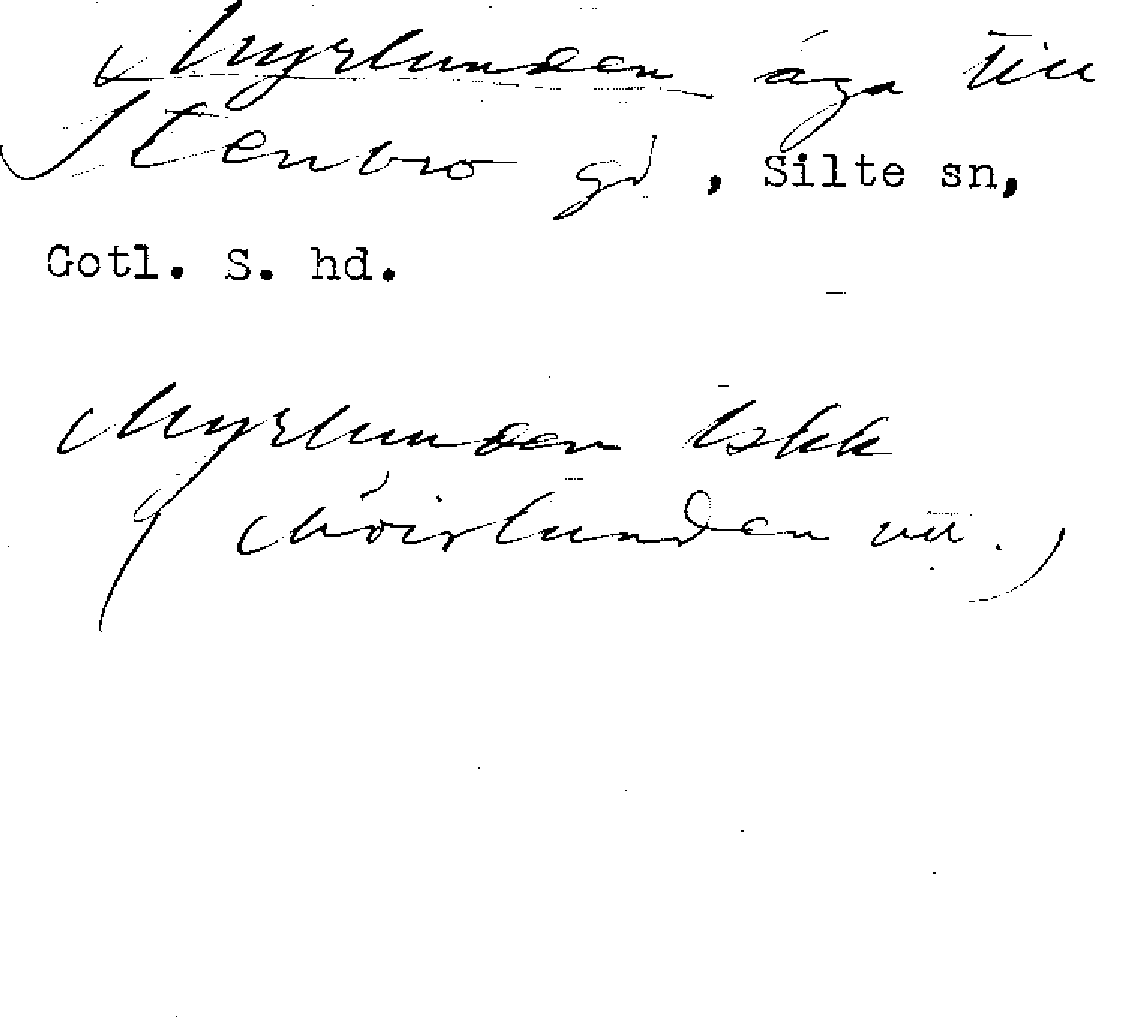 Myrlunden äga till
Stenbro gd, Silte sn,
Gotl. S. hd.
Myrlunden Lskk
(Möirlunden